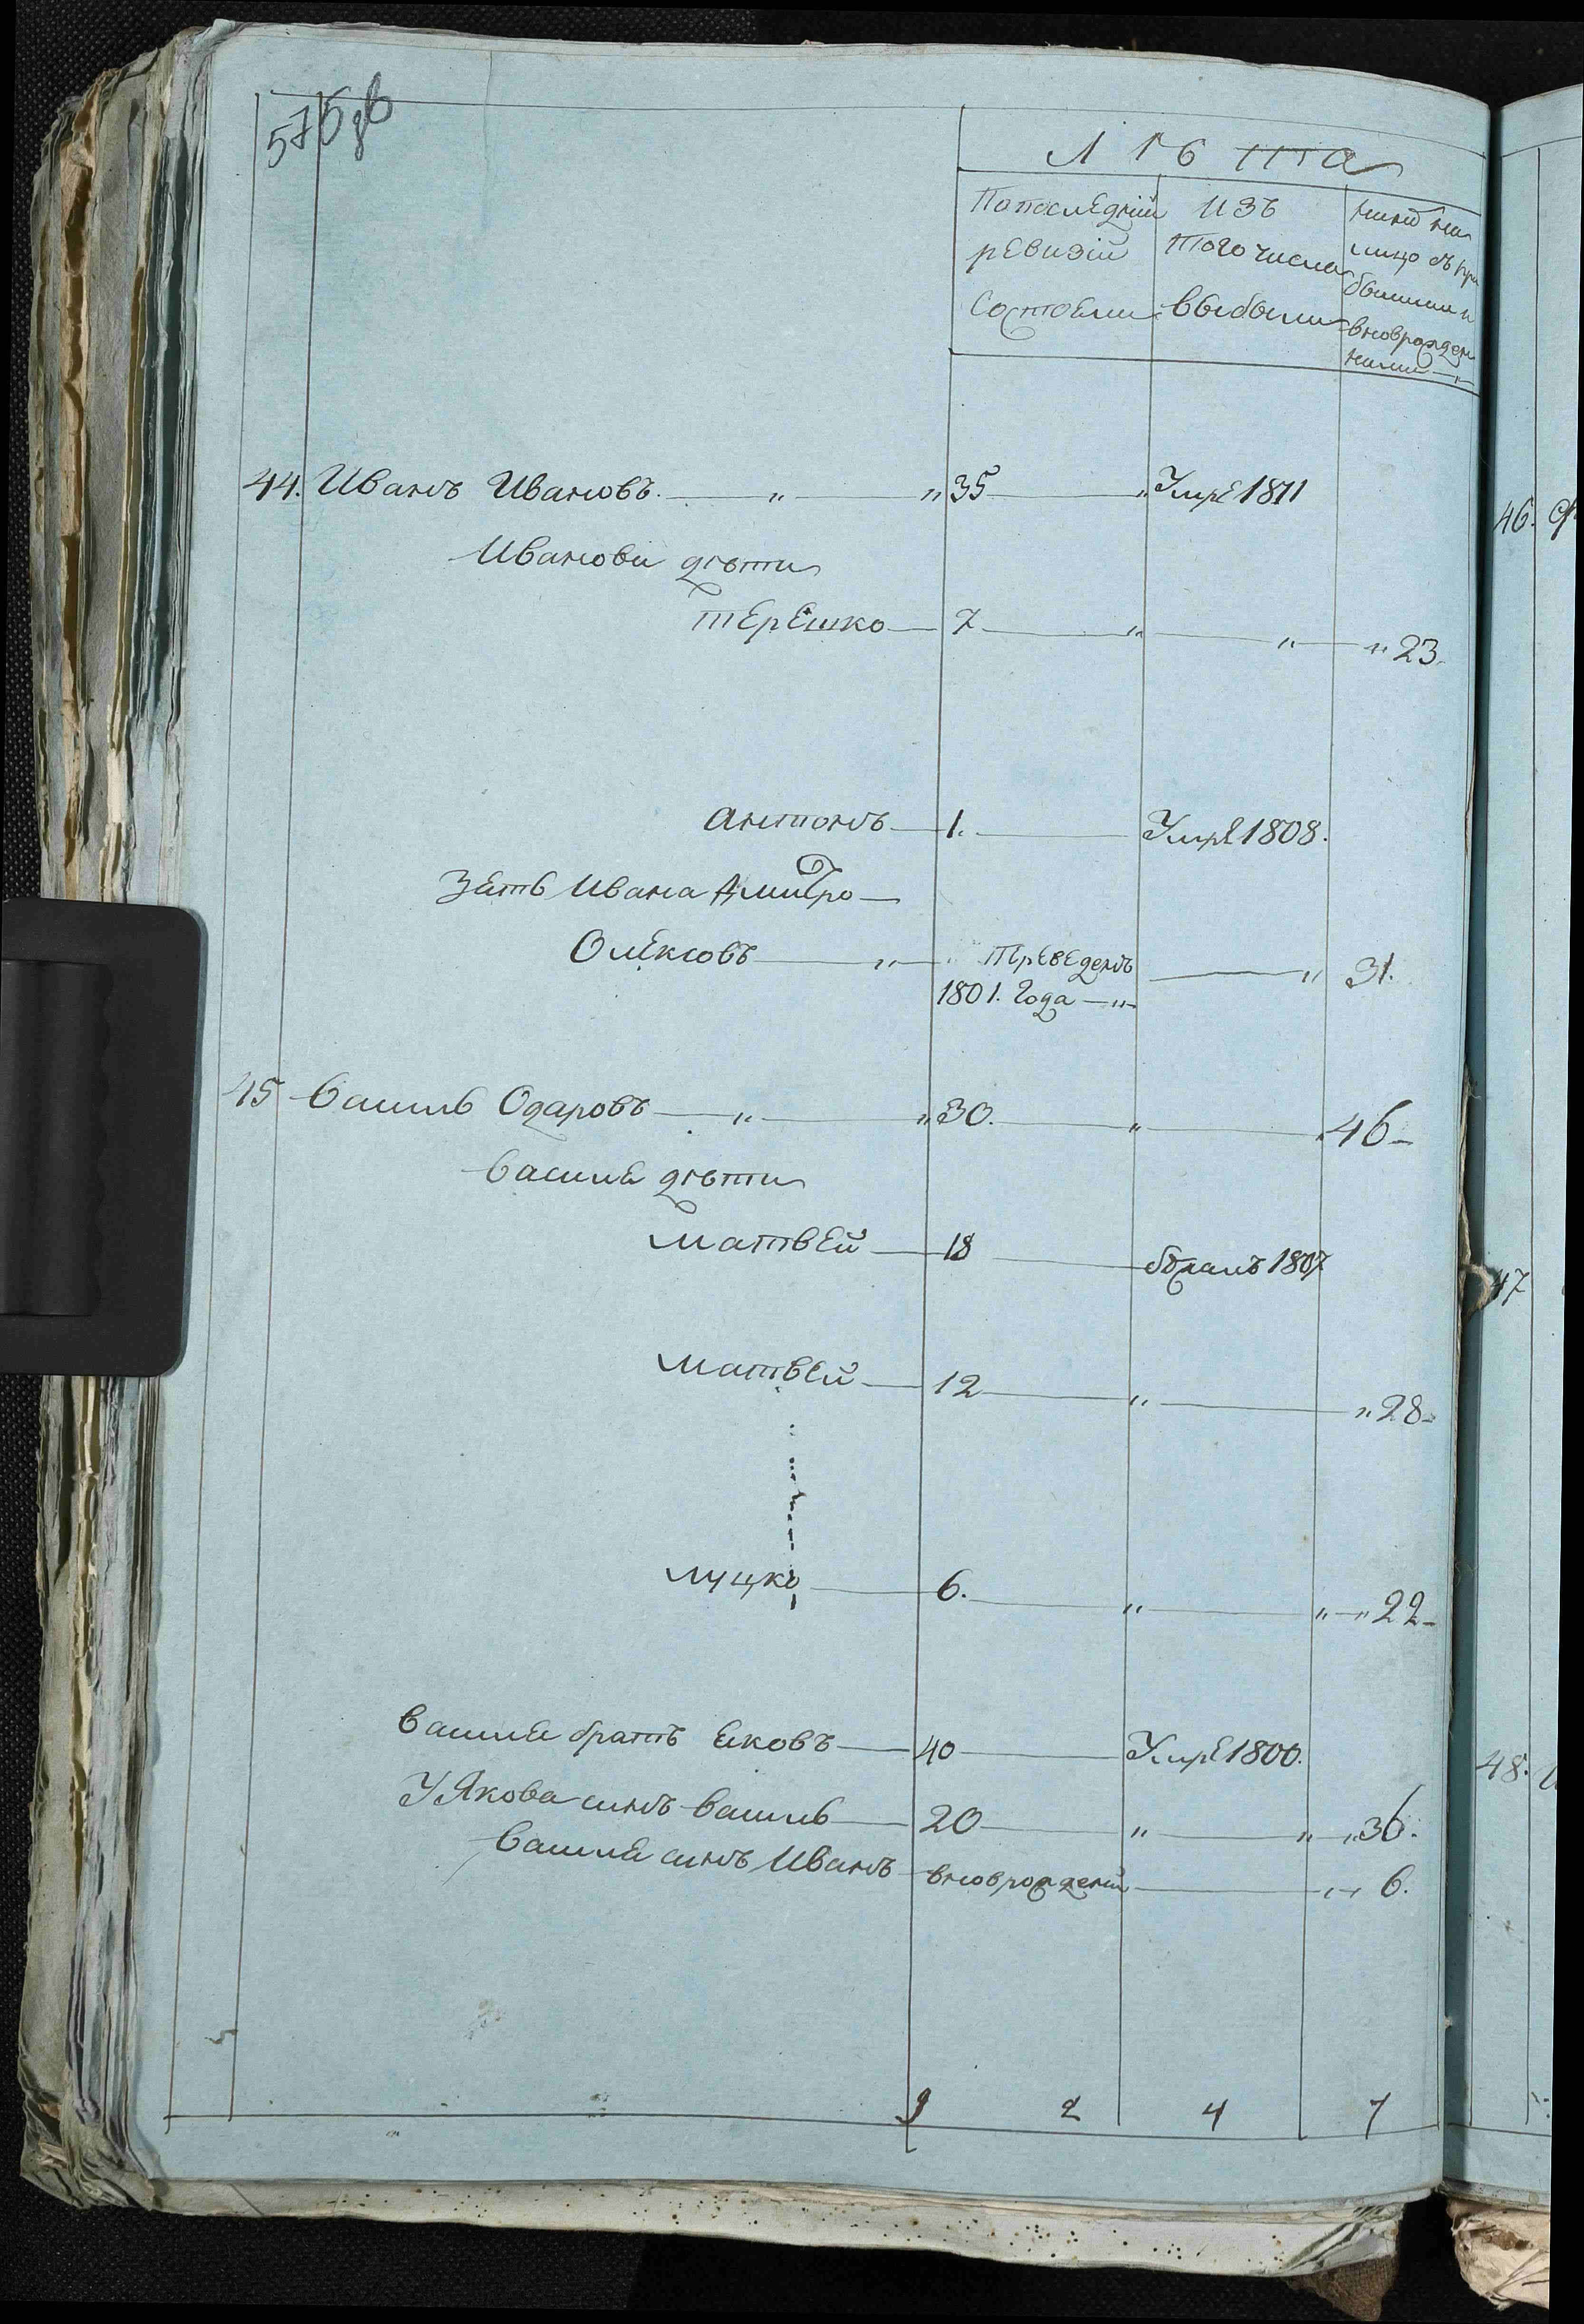 575 об
Лѣта
По последній ревизіи состоели
Изъ того числа выбыли
Нинѣ на лицо съ при бывшими и вновврожден ними
44. Иванъ Ивановъ. — " — " 35 — " Умре 1811
Иванови дѣти
терешко — 7 — " — " — " 23.
антонъ — 1. — Умре 1808.
Зеть Ивана Дмитро —
Олексовъ — " — " Переведенъ — " 31.
1801. года — "
45 Василь Одаровъ — " — " 30. — " — 46 —
Василе дѣти
матвей — 18 — бѣжалъ 1807
матвей — 12 — " — " 28 —
луцко — 6. — " — " — " 22 —
Василе братъ Ековъ — 40 — Умре 1800.
У Якова синъ Василь — 20 — " — " — " 36.
Василе синъ Иванъ вновврожденій — " — " 6.
3 2 4 7
46.
47
48.